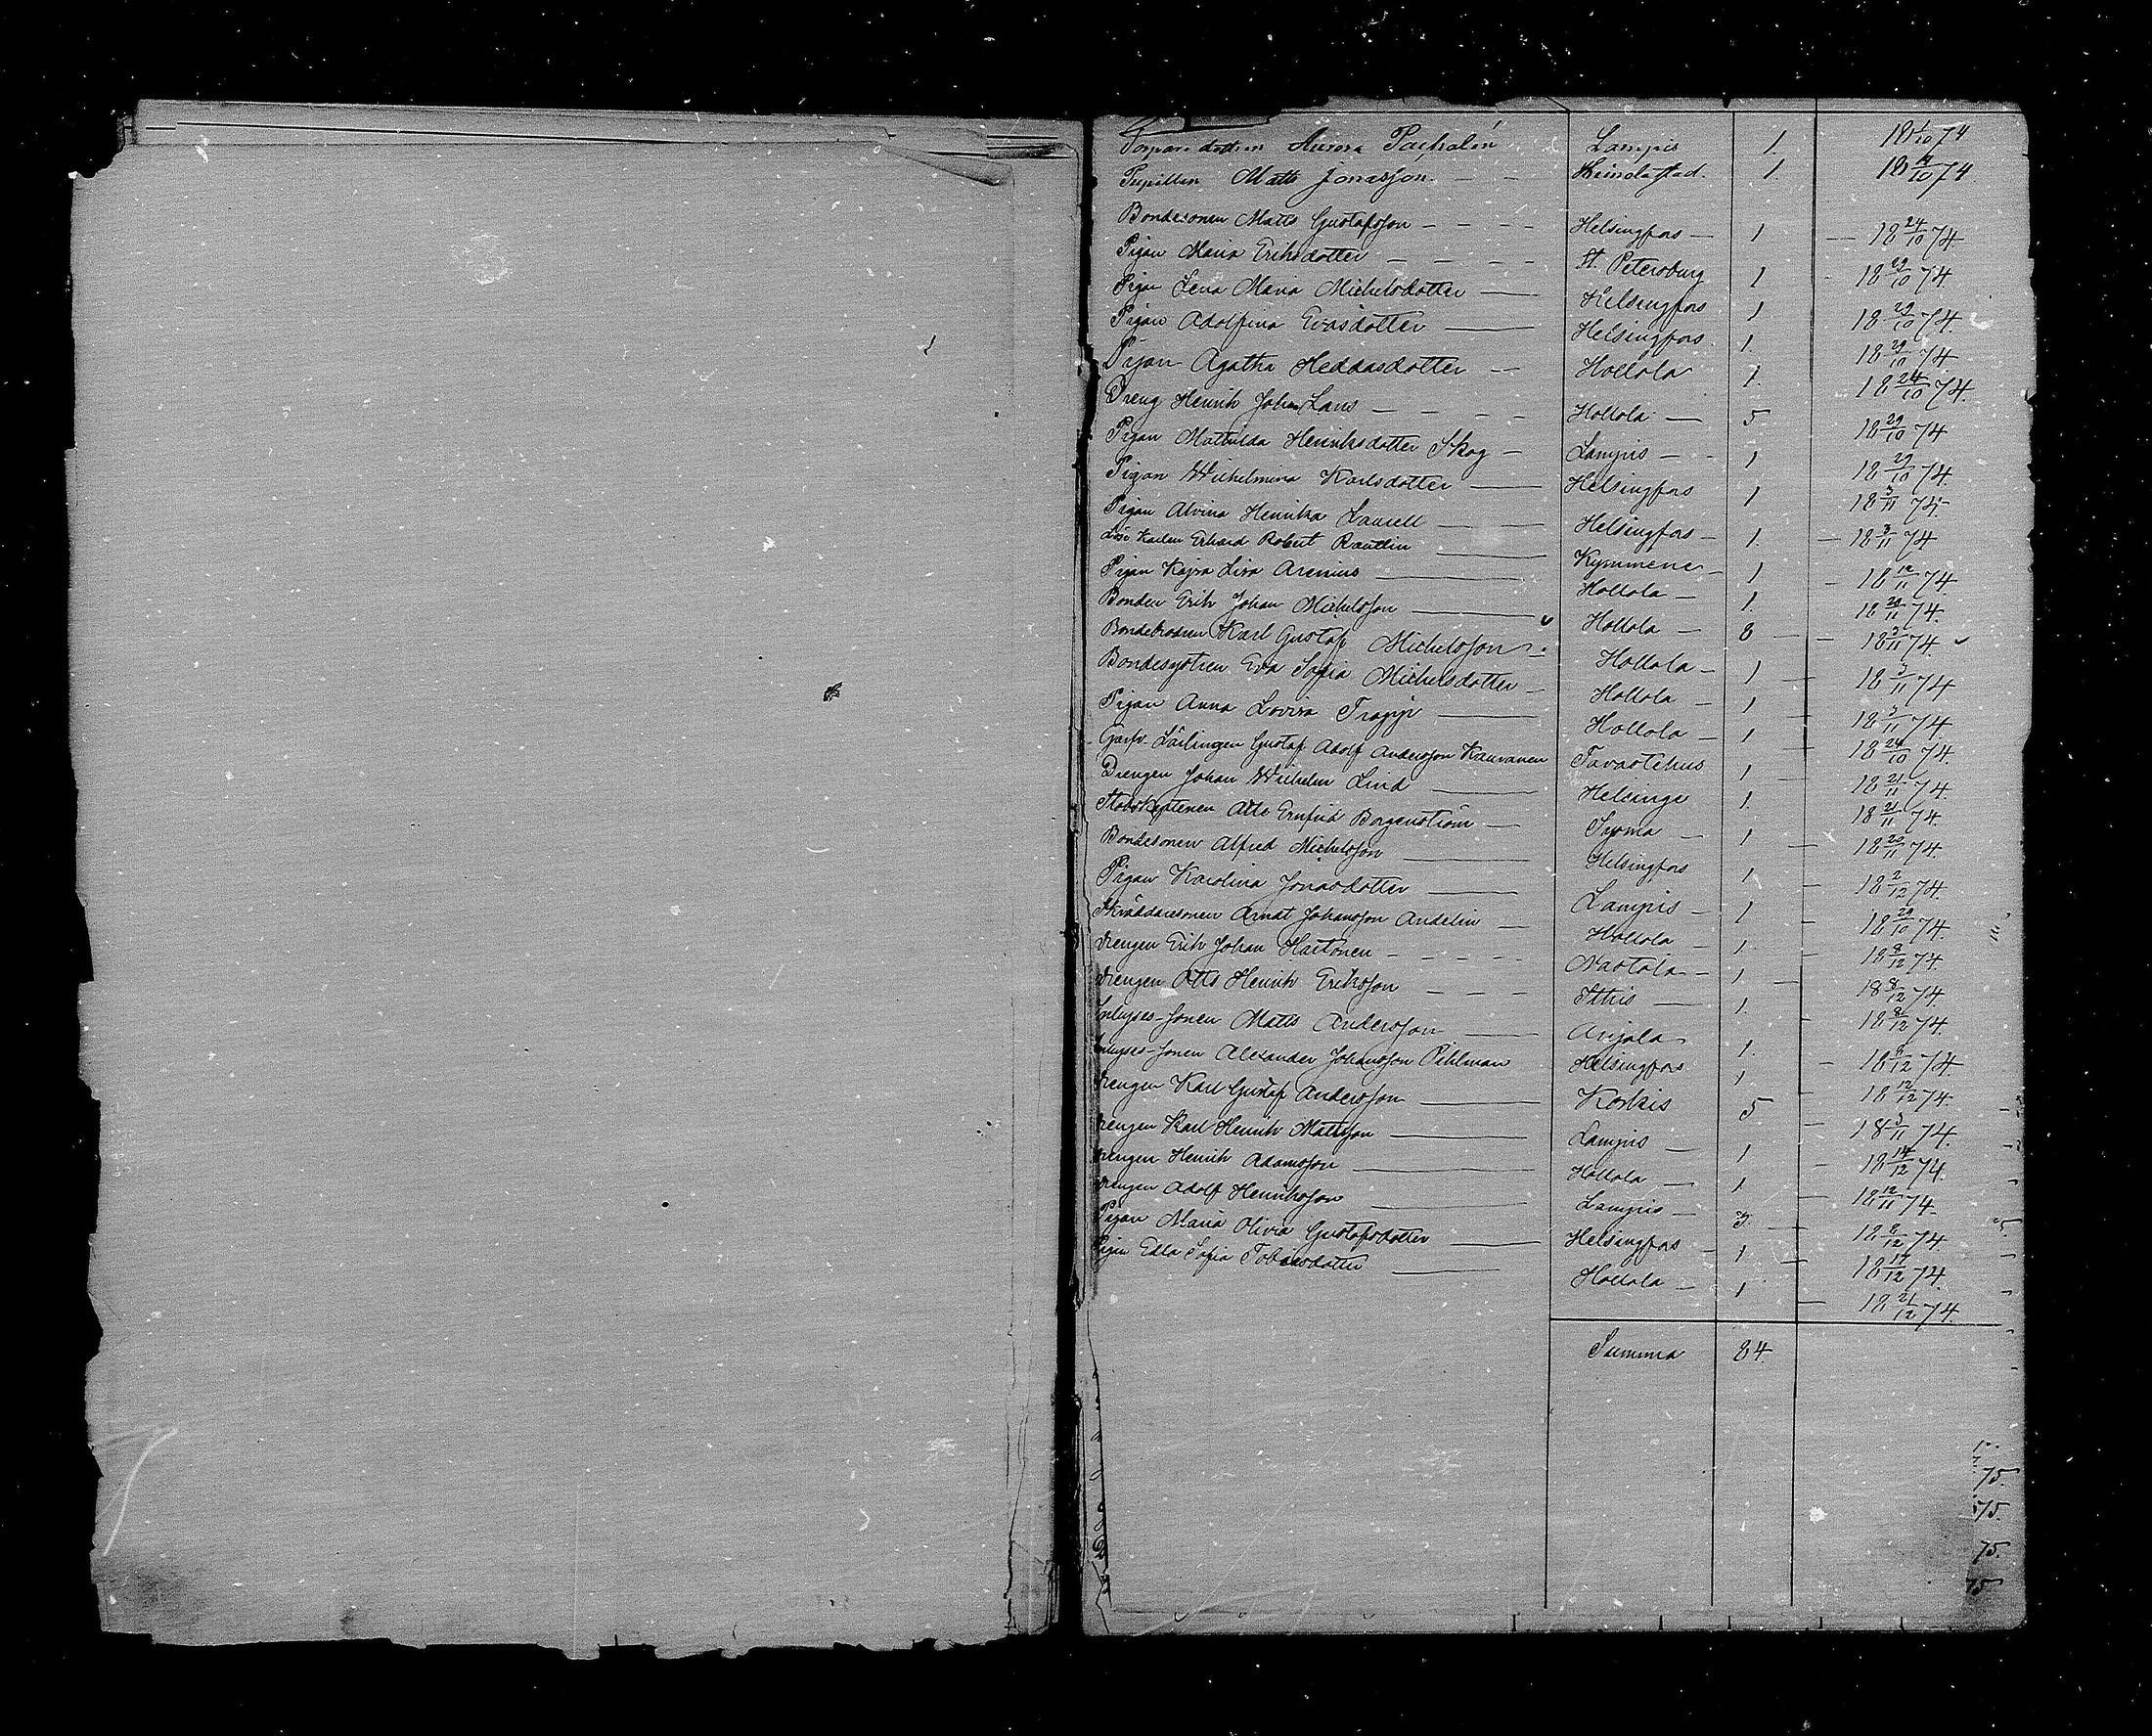 Torparedottren Aurora Paphalén Lampis 1. 18 1/10 74
Pupillen Matts Jonasson - - Heinola stad. 1. 18 9/10 74
Bondesonen Matts Gustafsson - - - - Helsingfors - 1 - 18 24/10 74
Pigan Maria Eriksdotter - - - - St. Petersburg 1 - 18 29/10 74
Pigan Lena Maria Michelsdotter - Helsingfors 1 18 29/10 74.
Pigan Adolfina Evasdotter - Helsingfors. 1. 18 29/10 74
Pigan Agatha Heddasdotter - Hollola 1. 18 24/10 74.
Dreng Henrik Johan Lans - - - - Hollola - 5 18 29/10 74
Pigan Mathilda Henriksdotter Skog - Lampis - - 1 18 29/10 74.
Pigan Wilhelmina Karlsdotter - Helsingfors 1 18 3/11 74.
Pigan Alvina Henrika Laurell - Helsingfors - 1. - 18 3/11 74
Lösе Karlen Erhard Robert Rautlin - Kymmene - 1 - 18 12/11 74.
Pigan Kajsa Lisa Arenius - Hollola - 1. 18 20/11 74.
Bonden Erik Johan Michelsson - Hollola - 8 - 18 5/11 74.
Bondebrodren Karl Gustaf Michelsson - Hollola - 1 - 18 5/11 74
Bondesystren Eva Sofia Michelsdotter - Hollola - 1 - 18 5/11 74
Pigan Anna Lovisa Trapp - Hollola - 1 - 18 24/10 74.
Garfv. Lärlingen Gustaf Adolf Andersson Kauranen Tavastehus 1 - 18 21/11 74.
Drengen Johan Wilhelm Lind - Helsinge 1. 18 21/11 74.
Stabskaptenen Otto Ernfrid Borgenström - Sysma - 1 - 18 29/11 74.
Bondesonen Alfred Michelsson - Helsingfors 1 - 18 2/12 74.
Pigan Karolina Jonasdotter - Lampis - 1 - 18 29/10 74.
Skräddaresonen Arnat Johansson Andelin - Hollola - 1. - 18 8/12 74.
Drengen Erik Johan Hartonen - - - - Nastola - 1 - 18 8/12 74.
Drengen Otto Henrik Eriksson - - - Itthis - 1. 18 8/12 74.
Inhyses-Sonen Matts Andersson - Anjala 1. - 18 8/12 74
Inhyses-Sonen Alexander Johansson Pihlman Helsingfors 1 - 18 12/12 74.
Drengen Karl Gustaf Andersson - Koskis 5 - 18 3/11 74.
Drengen Karl Henrik Mattsson - Lampis - 1 - 18 14/12 74.
Drengen Henrik Adamsson - Hollola - 1 - 18 12/11 74.
Drengen Adolf Henriksson - Lampis - 3. - 18 8/12 74.
Pigan Maria Olivia Gustafsdotter - Helsingfors - 1 - 18 17/12 74.
Pigan Edla Sofia Tobiasdotter - Hollola - 1 - 18 21/12 74.
Summa 84.
75.
75.
75.
75